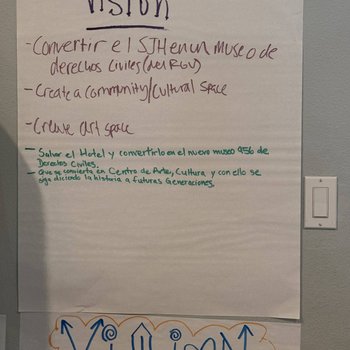 Vision
- Convertir el SJH en un Museo de
derechos Civiles (del RGV)
- Create a Community/Cultural Space
- Create art space
- Salvar el Hotel y convertirlo en el nuevo museo 956 de
Derechos Civiles.
- Que se convierta en Centro de Arte, Cultura y con ello se
siga diciendo la historia a futuras Generaciones.
Vision